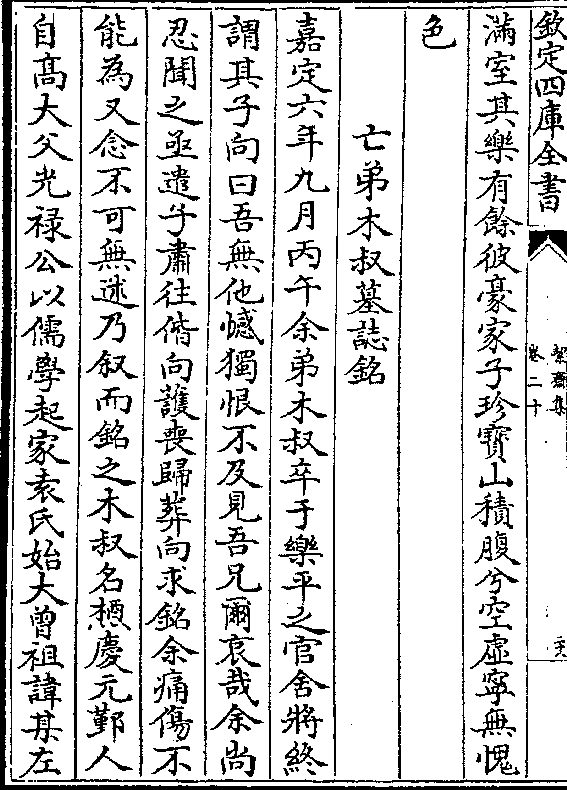 欽定四庫全書
絜齋集
卷二十
滿室其樂有餘彼豪家子珍寶山積腹兮空虛寧無愧
色
亡弟木叔墓誌銘
嘉定六年九月丙午余弟木叔卒于樂平之官舍將終
謂其子向曰吾無他憾獨恨不及見吾兄爾哀哉余尚
忍聞之亟遣子肅往偕向護喪歸葬向求銘余痛傷不
能為又念不可無述乃叙而銘之木叔名槱慶元鄞人
自髙大父光禄公以儒學起家袁氏始大曾祖諱某左